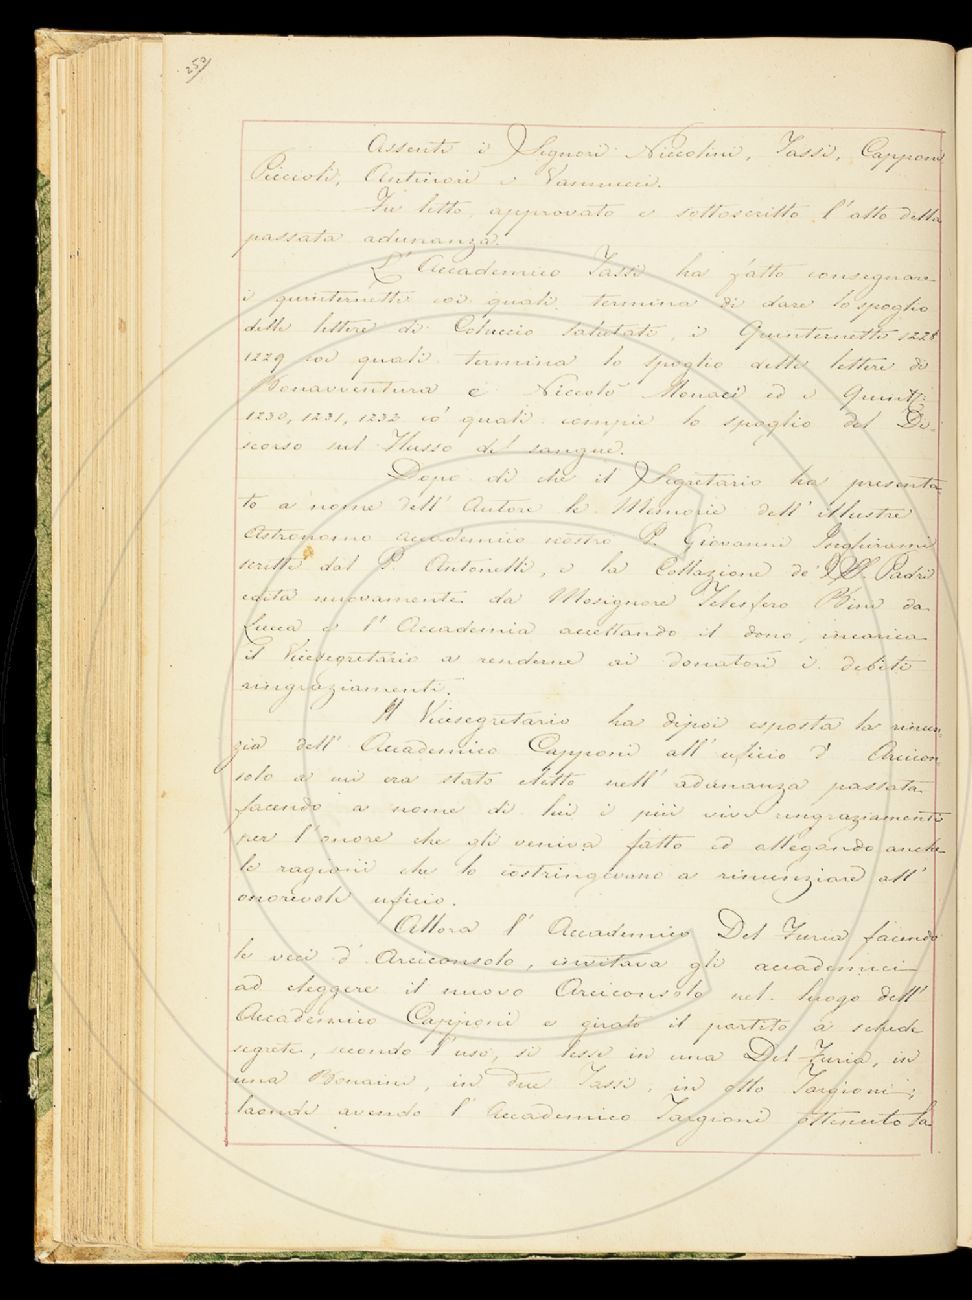 250
Assenti i Signori Niccolini, Tassi, Capponi
Piccioli, Antinori e Vannucci.
Fu letto, approvato e sottoscritto l'atto della
passata adunanza.
L'Accademico Tassi ha fatto consegnare
i quinternetti coi quali termina di dare lo spoglio
delle lettere di Coluccio Salutati, i Quinternetti 1228
1229 coi quali termina lo spoglio delle lettere di
Bonavventura e Niccolò Monaci ed i Quint.i
1230, 1231, 1232 co' quali compie lo spoglio del Di-
scorso sul Flusso del sangue.
Dopo di che il Segretario ha presenta-
to a nome dell'Autore le Memorie dell'illustre
Astronomo accademico nostro P. Giovanni Inghirami
scritte dal P. Antonelli, e la Collazione de' SS. Padri
edita nuovamente da Mosignore Telesforo Bini da
Lucca e l'Accademia accettando il dono, incarica
il Vicesegretario a renderne ai donatori i debiti
ringraziamenti.
Il Vicesegretario ha dipoi esposta la rinun-
zia dell'Accademico Capponi all'uficio d'Arcicon-
solo a cui era stato eletto nell'adunanza passata
facendo a nome di lui i più vivi ringraziamenti
per l'onore che gli veniva fatto ed allegando anche
le ragioni che lo costringevano a rinunziare all'
onorevole uficio.
Allora l'Accademico Del Furia facendo
le veci d'Arciconsolo, invitava gli accademici
ad eleggere il nuovo Arciconsolo nel luogo dell'
Accademico Capponi e girato il partito a schede
segrete, secondo l'uso, si lesse in una Del Furia, in
una Bonaini, in due Tassi, in otto Targioni;
laonde avendo l'Accademico Targioni ottenuto la